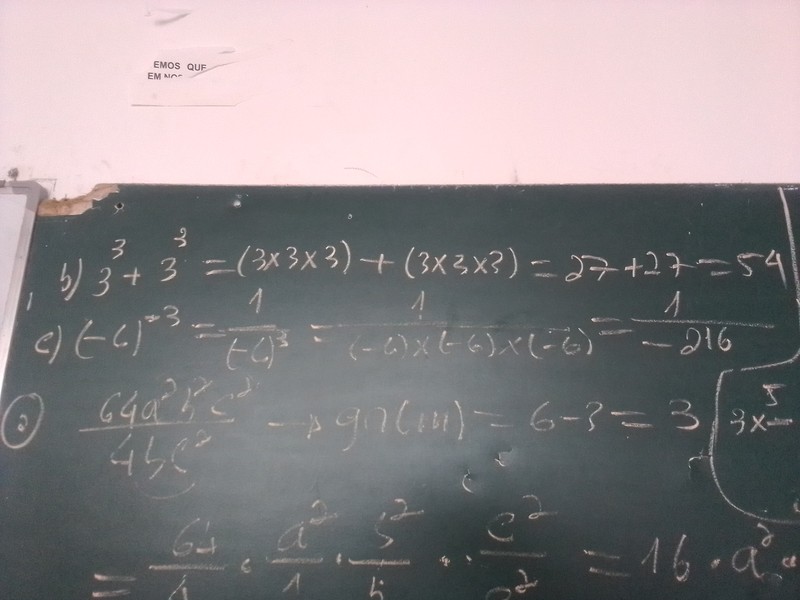 EMOS QUE
EM NOS
b) 3³ + 3³ = (3x3x3) + (3x3x3) = 27 + 27 = 54
c) (-6)⁻³ = 1/(-6)³ = 1/((-6)x(-6)x(-6)) = 1/-216
64a²b²c²/4bc² → gn(m) = 6 - 3 = 3
3x⁵-
= 64/4 · a²/1 · b²/b · c²/c² = 16 · a² ·